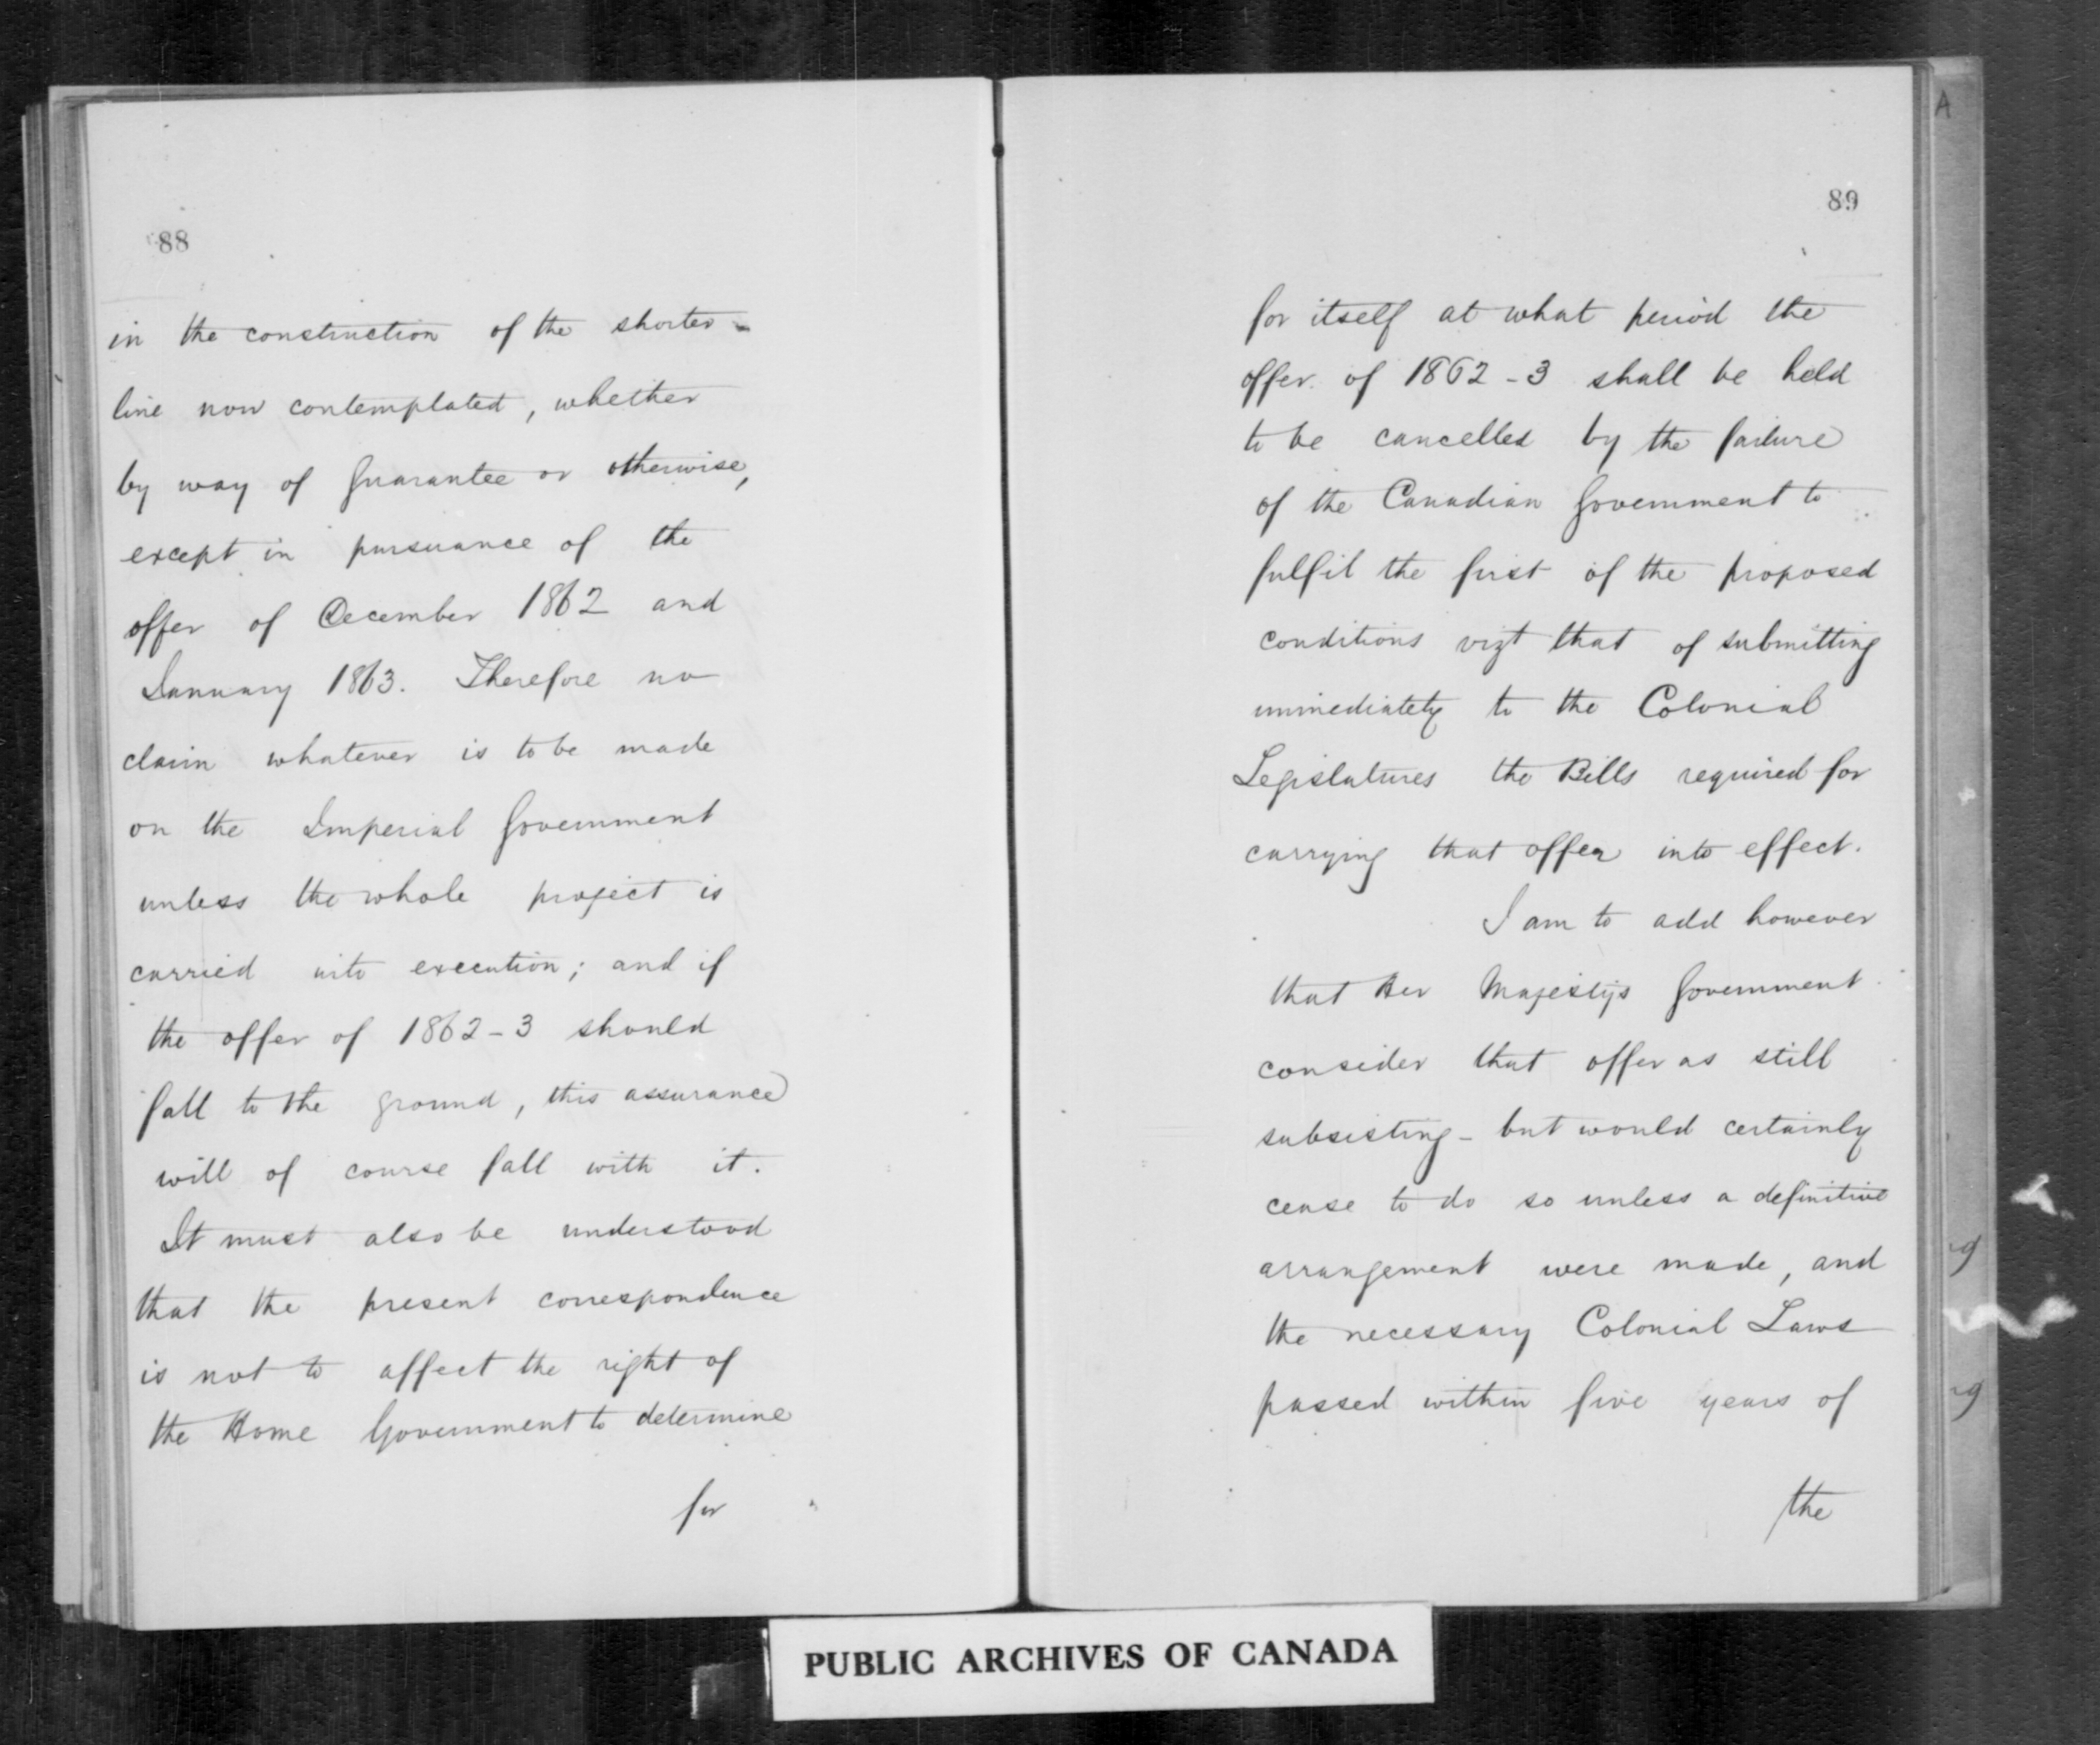 88
in the construction of the shorter
line now contemplated, whether
by way of Guarantee or otherwise,
except in pursuance of the
offer of December 1862 and
January 1863. Therefore no
claim whatever is to be made
on the Imperial Government
unless the whole project is
carried into execution; and if
the offer of 1862-3 should
fall to the ground, this assurance
will of course fall with it.
It must also be understood
that the present correspondence
is not to affect the right of
the Home Government to determine
for
89
for itself at what period the
offer of 1862-3 shall be held
to be cancelled by the failure
of the Canadian Government to
fulfil the first of the proposed
conditions vizt that of submitting
immediately to the Colonial
Legislatures the Bills required for
carrying that offer into effect.
I am to add however
that Her Majesty's Government
consider that offer as still
subsisting - but would certainly
cease to do so unless a definitive
arrangement were made, and
the necessary Colonial Laws
passed within five years of
the
A
g
g
PUBLIC ARCHIVES OF CANADA